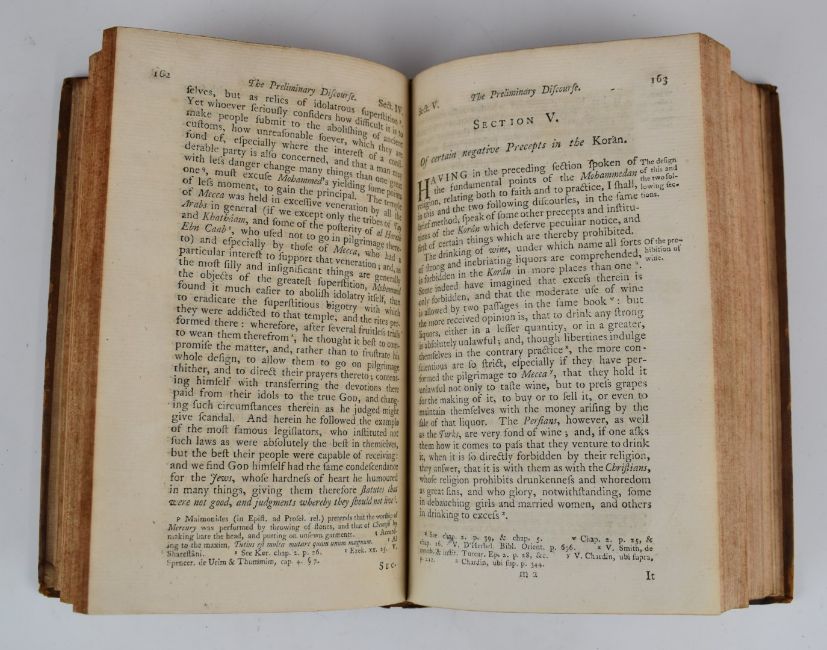 162
The Preliminary Discourſe.
Sect. IV.
ſelves, but as relics of idolatrous ſuperſtition.
Yet whoever ſeriouſly conſiders how difficult it is to
make people ſubmit to the aboliſhing of ancient
cuſtoms, how unreaſonable ſoever, which they are
fond of, eſpecially where the intereſt of a conſi-
derable party is alſo concerned, and that a man may
with leſs danger change many things than one great
one, muſt excuſe Mohammed's yielding ſome points
of leſs moment, to gain the principal. The temple
of Mecca was held in exceſſive veneration by all the
Arabs in general (if we except only the tribes of Tay
and Khathâam, and ſome of the poſterity of al Hareth
Ebn Caab, who uſed not to go in pilgrimage there-
to) and eſpecially by thoſe of Mecca, who had a
particular intereſt to ſupport that veneration; and, as
the moſt ſilly and inſignificant things are generally
the objects of the greateſt ſuperſtition, Mohammed
found it much eaſier to aboliſh idolatry itſelf, than
to eradicate the ſuperſtitious bigotry with which
they were addicted to that temple, and the rites per-
formed there: wherefore, after ſeveral fruitleſs trials
to wean them therefrom, he thought it beſt to com-
promiſe the matter, and, rather than to fruſtrate his
whole deſign, to allow them to go on pilgrimage
thither, and to direct their prayers thereto; content-
ing himſelf with transferring the devotions there
paid from their idols to the true GOD, and chang-
ing ſuch circumſtances therein as he judged might
give ſcandal. And herein he followed the example
of the moſt famous legiſlators, who inſtituted not
ſuch laws as were abſolutely the beſt in themſelves,
but the beſt their people were capable of receiving:
and we find GOD himſelf had the ſame condeſcendance
for the Jews, whoſe hardneſs of heart he humoured
in many things, giving them therefore ſtatutes that
were not good, and judgments whereby they ſhould not live.
P Maimonides (in Epiſt. ad Proſel. rel.) pretends that the worſhip of
Mercury was performed by throwing of ſtones, and that of Chemoſh by
making bare the head, and putting on unſewn garments. Accord-
ing to the maxim, Tutius eſt multos mutare quam unum magnum. Al
Shareſtâni. See Kor. chap. 2. p. 26. Ezek. xx. 25. V.
Spencer. de Urim & Thummim, cap. 4. § 7.
SEC-
Sect. V.
The Preliminary Diſcourſe.
163
SECTION V.
Of certain negative Precepts in the Korân.
HAVING in the preceding ſection ſpoken of
the fundamental points of the Mohammedan
religion, relating both to faith and to practice, I ſhall,
in this and the two following diſcourſes, in the ſame
brief method, ſpeak of ſome other precepts and inſtitu-
tions of the Korân which deſerve peculiar notice, and
firſt of certain things which are thereby prohibited.
The deſign
of this and
the two fol-
lowing ſec-
tions.
The drinking of wine, under which name all ſorts
of ſtrong and inebriating liquors are comprehended,
is forbidden in the Korân in more places than one.
Some indeed have imagined that exceſs therein is
only forbidden, and that the moderate uſe of wine
is allowed by two paſſages in the ſame book: but
the more received opinion is, that to drink any ſtrong
liquors, either in a leſſer quantity, or in a greater,
is abſolutely unlawful; and, though libertines indulge
themſelves in the contrary practice, the more con-
ſcientious are ſo ſtrict, eſpecially if they have per-
formed the pilgrimage to Mecca, that they hold it
unlawful not only to taſte wine, but to preſs grapes
for the making of it, to buy or to ſell it, or even to
maintain themſelves with the money ariſing by the
ſale of that liquor. The Perſians, however, as well
as the Turks, are very fond of wine; and, if one aſks
them how it comes to paſs that they venture to drink
it, when it is ſo directly forbidden by their religion,
they anſwer, that it is with them as with the Chriſtians,
whoſe religion prohibits drunkenneſs and whoredom
as great ſins, and who glory, notwithſtanding, ſome
in debauching girls and married women, and others
in drinking to exceſs.
Of the pro-
hibition of
wine.
See chap. 2. p. 39, & chap. 5. Chap. 2. p. 25, &
chap. 16. V. D'Herbel. Bibl. Orient. p. 696. V. Smith, de
morib. & inſtit. Turcar. Ep. 2. p. 28, &c. V. Chardin, ubi ſupra,
p. 212. Chardin, ubi ſup. p. 344.
M 2
It